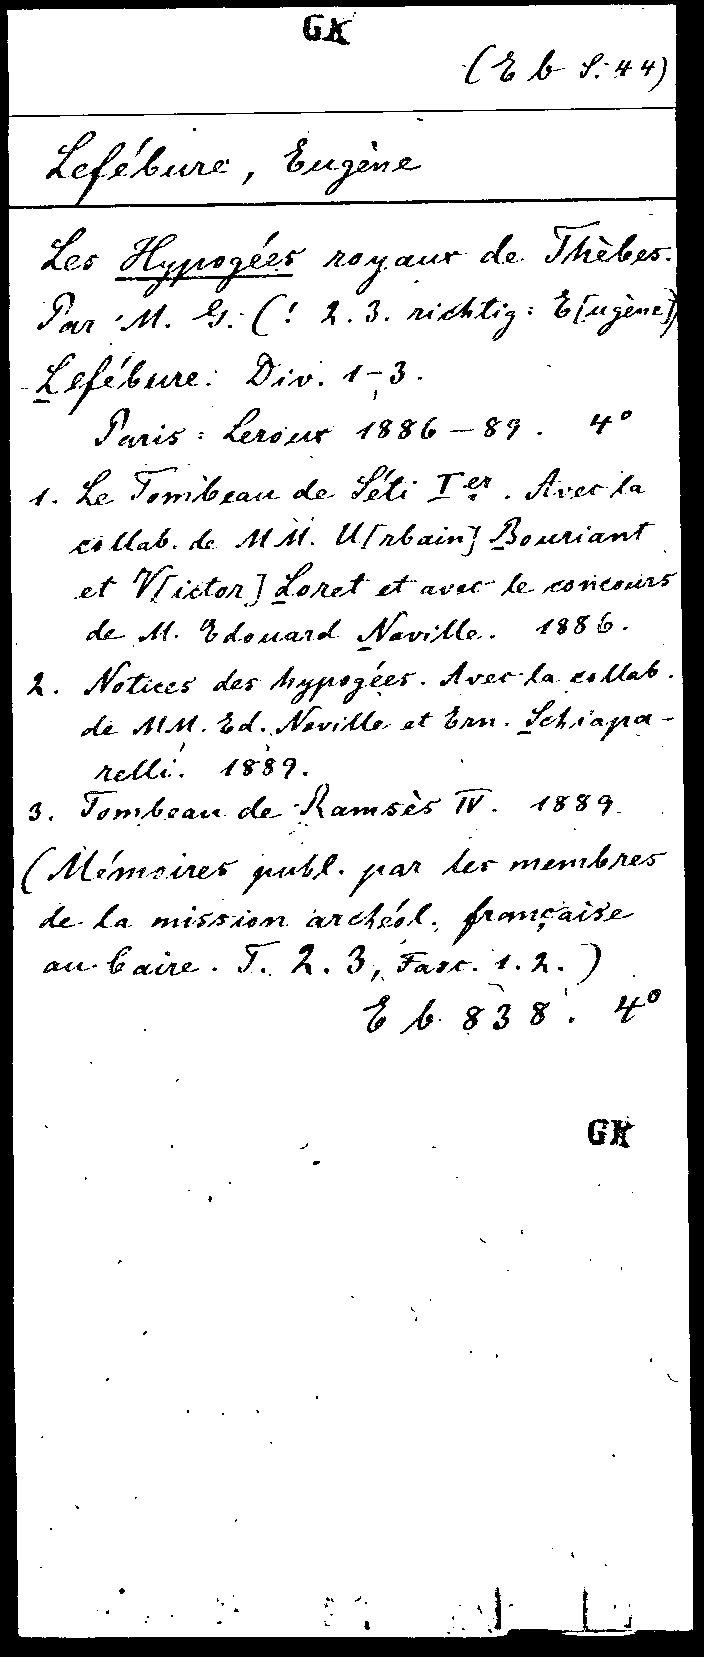 GK
(E b S. 44)
Lefébure, Eugène
Les Hypogées royaux de Thèbes.
Par M. G. (! 2. 3. richtig: E[ugène])
Lefébure. Div. 1-3.
Paris: Leroux 1886-89. 4°
1. Le Tombeau de Séti Ier. Avec la
collab. de MM. U[rbain] Bouriant
et V[ictor] Loret et avec le concours
de M. Edouard Naville. 1886.
2. Notices des hypogées. Avec la collab.
de MM. Ed. Naville et Ern. Schiapa-
relli. 1889.
3. Tombeau de Ramsès IV. 1889.
(Mémoires publ. par les membres
de la mission archéol. française
au Caire. T. 2. 3, Fasc. 1. 2.)
E b 838. 4°
GK